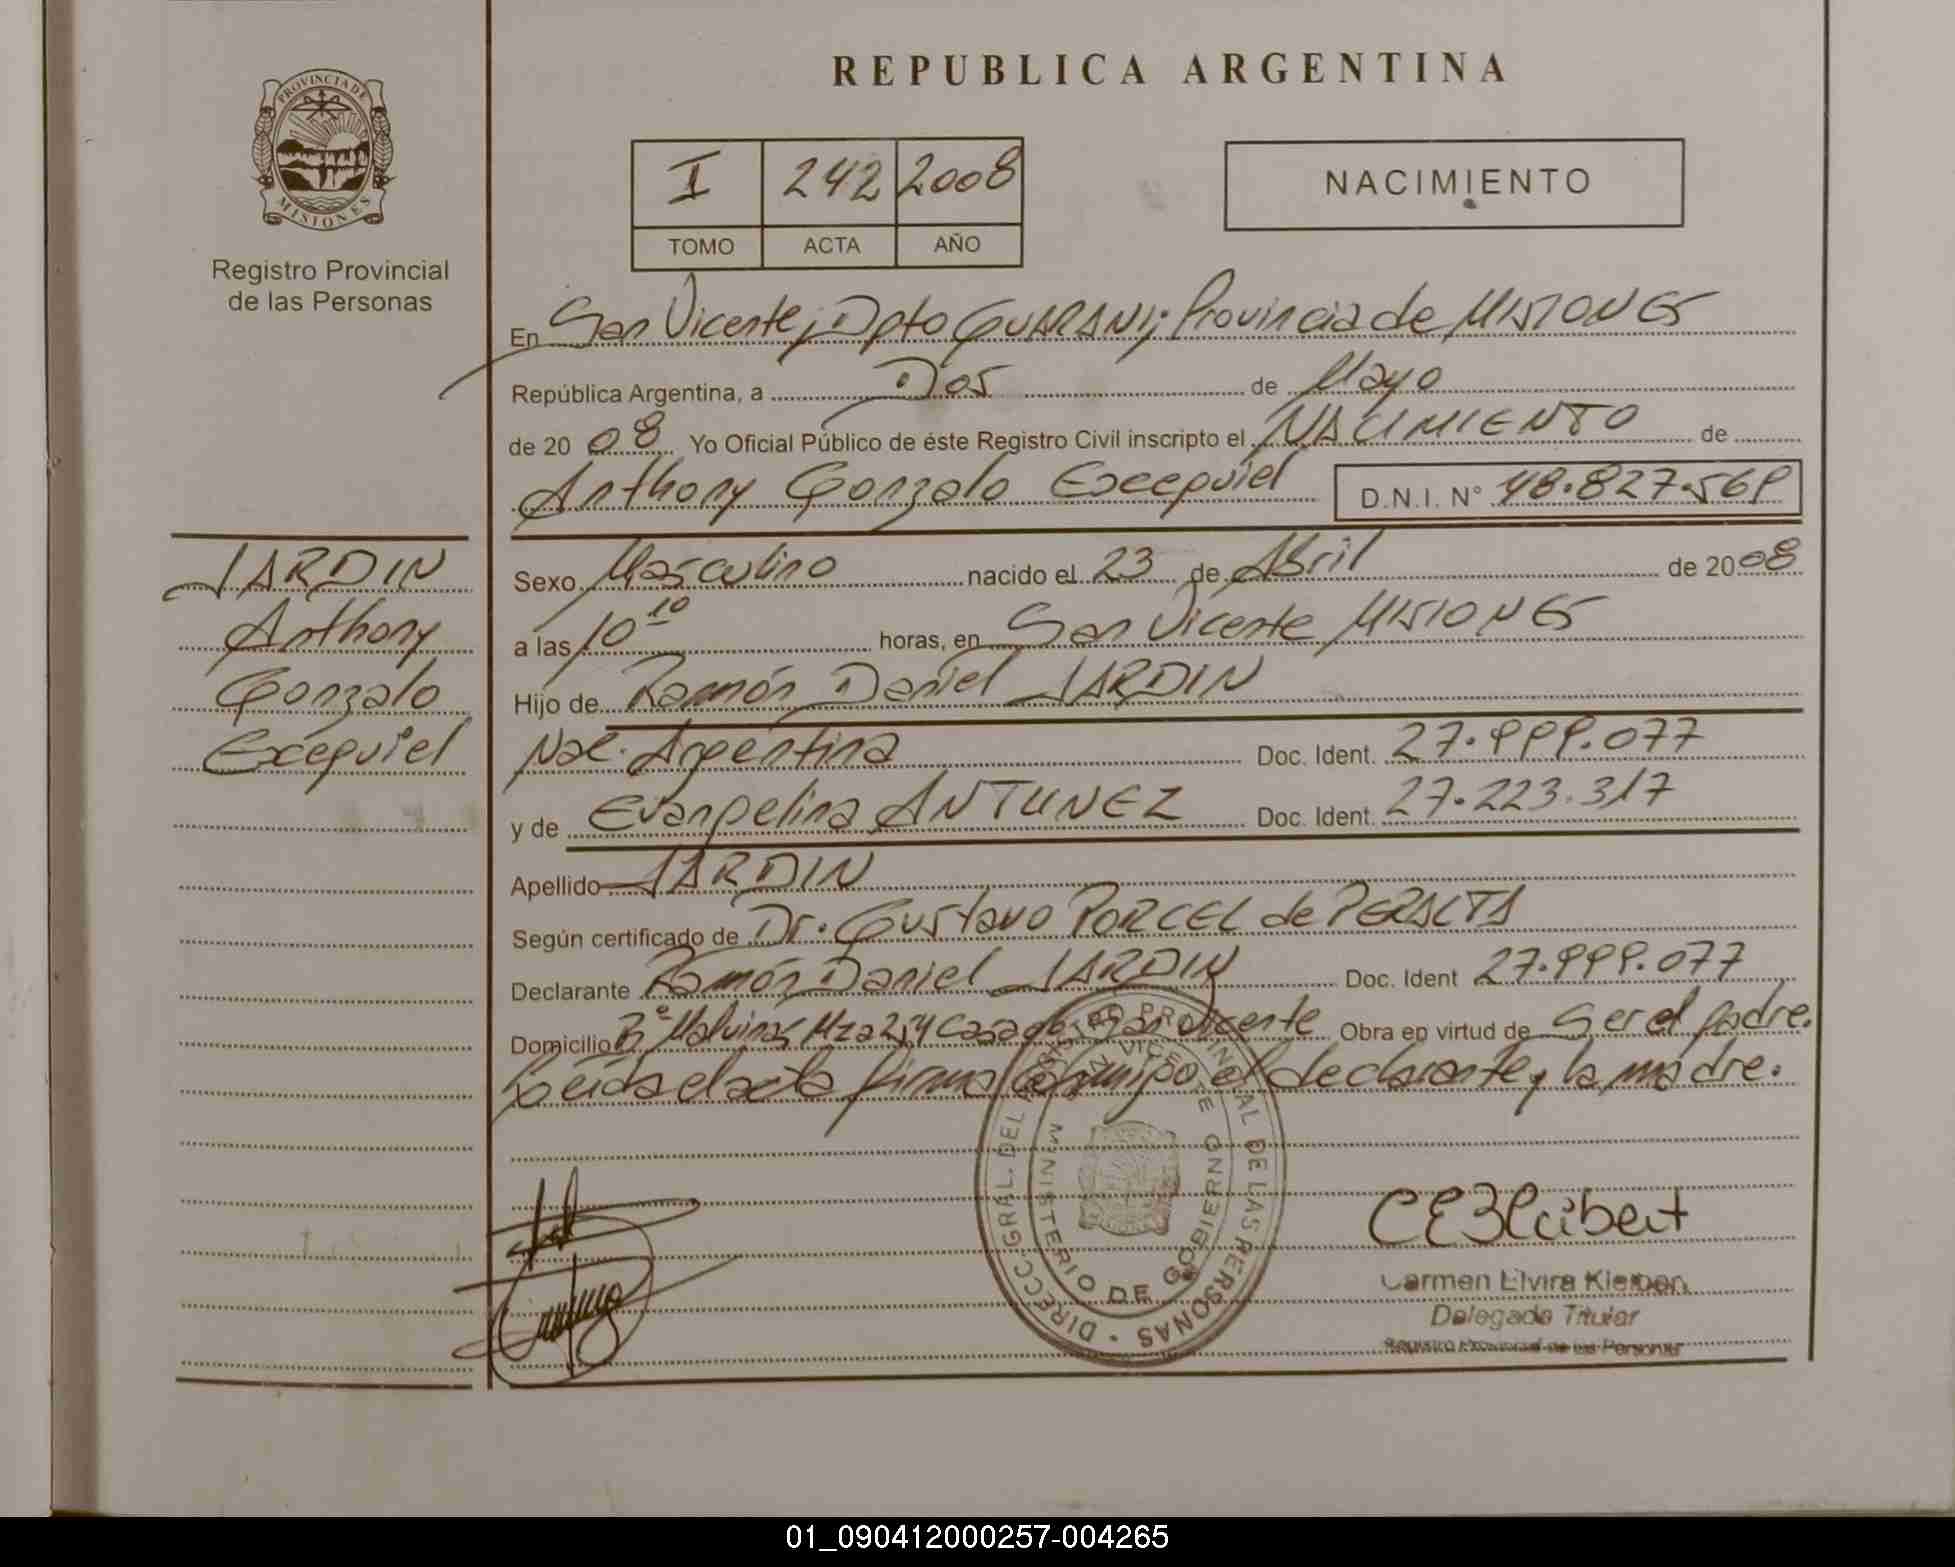 PROVINCIA DE
MISIONES
Registro Provincial
de las Personas
JARDIN
Anthony
Gonzalo
Exequiel
REPUBLICA ARGENTINA
I 242 2008
TOMO ACTA AÑO
NACIMIENTO
En San Vicente, Dpto GUARANI; Provincia de MISIONES
República Argentina, a Dos de Mayo
de 20 08 Yo Oficial Público de éste Registro Civil inscripto el NACIMIENTO de
Anthony Gonzalo Exequiel D.N.I. Nº 48.827.569
Sexo Masculino nacido el 23 de Abril de 2008
a las 10 10 horas, en San Vicente MISIONES
Hijo de Ramón Daniel JARDIN
Nac. Argentina Doc. Ident. 27.999.077
y de Evangelina ANTUNEZ Doc. Ident. 27.223.317
Apellido JARDIN
Según certificado de Dr. Gustavo PORCEL de PERALTA
Declarante Ramón Daniel JARDIN Doc. Ident 27.999.077
Domicilio Bº Malvinas Mza 254 Casa San Vicente Obra en virtud de Ser el padre.
Leída el acta firma conmigo, el declarante y la madre.
DIRECC. GRAL. DEL REGISTRO PROVINCIAL DE LAS PERSONAS
SAN VICENTE
MINISTERIO DE GOBIERNO
Carmen Elvira
Delegada Titular
Registro Provincial de las Personas
01_090412000257-004265